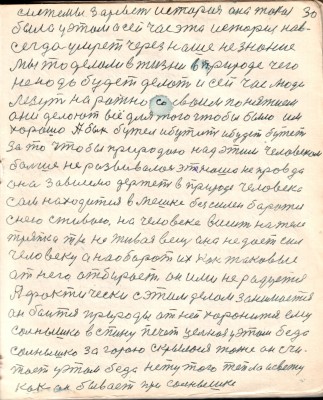 системы Зарыет история она такая 30
была у этом а сей час эта история нав-
сегда умрет через наше не знание
Мы то делали в жизни в природе чего
не надо будет делат и сей час люди
Лезут на ратно со своим понятием
ани делают всё для того чтобы было им
хорашо А бык бутел и бутит и будет бутет
За то что бы природаю над этим человеком
болше не развивалас это наша не правда
она Зависимо держет в природе человека
сам находится в мешке без силен бароти
снего стихаю. на человека висит на теле
тряпка т-р не живая вещ она не дает сил
человеку а наоборот их как таковые
ат него атбирает. он ими не радуется
А практически с этим делам занимается
он боится природы ат ней хоронится ему
солнышко в спину печот целной у этом беда
солнышко за гораю скрылося тоже он счи-
тает у этом беда нету того тепла и свету
как он бывает при солнышке